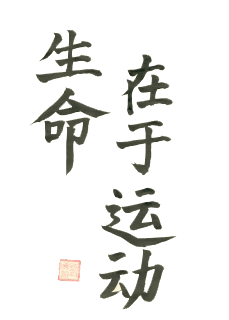 生命
在于运动